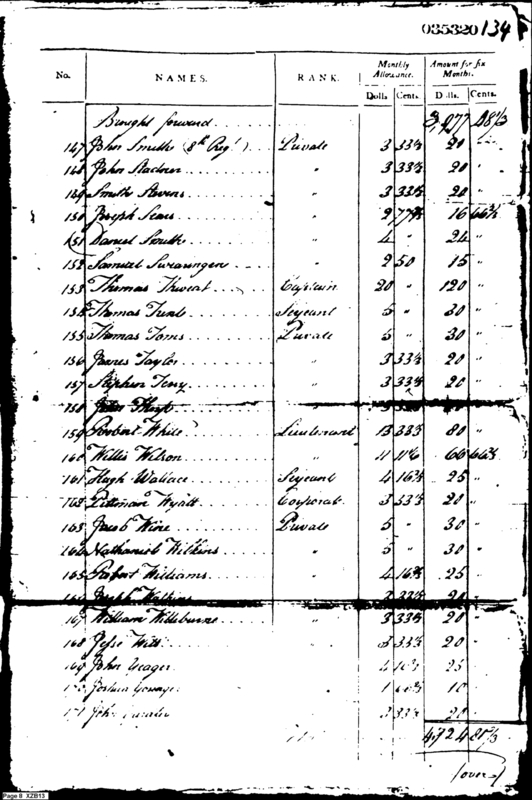 035320 134
No. NAMES. RANK. Monthly Allowance. Amount for six Months.
Dolls. Cents. Dolls. Cents.
Brought forward 3,977 48 1/3
147 John Smith (8th Regt) Private 3 33 1/3 20 "
148 John Stadner " 3 33 1/3 20 "
149 Smith Stevens " 3 33 1/3 20 "
150 Joseph Sears " 2 77 2/3 16 66 2/3
151 Daniel Smith " 4 " 24 "
152 Samuel Swearingen " 2 50 15 "
153 Thomas Thweat Captain 20 " 120 "
154 Thomas Serjeant 5 " 30 "
155 Thomas Toms Private 5 " 30 "
156 James Taylor " 3 33 1/3 20 "
157 Stephen Terry " 3 33 1/3 20 "
158 John Tharp
159 Robert White Lieutenant 13 33 1/3 80 "
160 Willis Wilson " 11 11 66 66 2/3
161 Hugh Wallace Serjeant 4 16 2/3 25 "
162 Pittman Wyatt Corporal 3 33 1/3 20 "
163 Jacob Wine Private 5 " 30 "
164 Nathaniel Wilkins " 5 " 30 "
165 Robert Williams " 4 16 2/3 25 "
166 Joseph Watkins 3 33 1/3 20 "
167 William Willeburne 3 33 1/3 20 "
168 Jesse Witt 3 33 1/3 20 "
169 John Yeager 4 16 2/3 25
Joshua 1 10
171 John 3 33 1/3 20
4,724 81 1/3
(over)
Page 8 XZB13